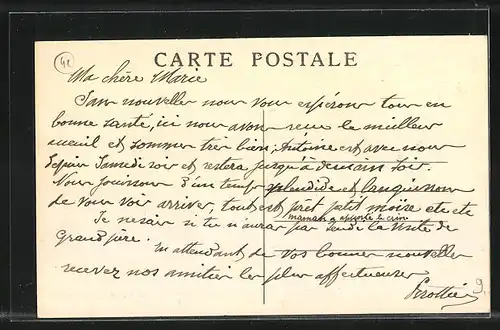 42
CARTE POSTALE
Ma chère Marie
Sans nouvelles nous vous espérons tous en
bonne santé, ici nous avons reçu le meilleur
accueil et sommes très bien; Antoine est avec nous
depuis Samedi soir et restera jusqu'à demain soir.
Nous jouissons d'un temps splendide et languissons
de vous voir arriver, tout est prêt petit moïse etc etc
maman a apporté le crin
Je ne sais si tu n'auras pas la visite de
Grand père.
En attendant de vos bonnes nouvelles
recevez nos amitiés les plus affectueuses